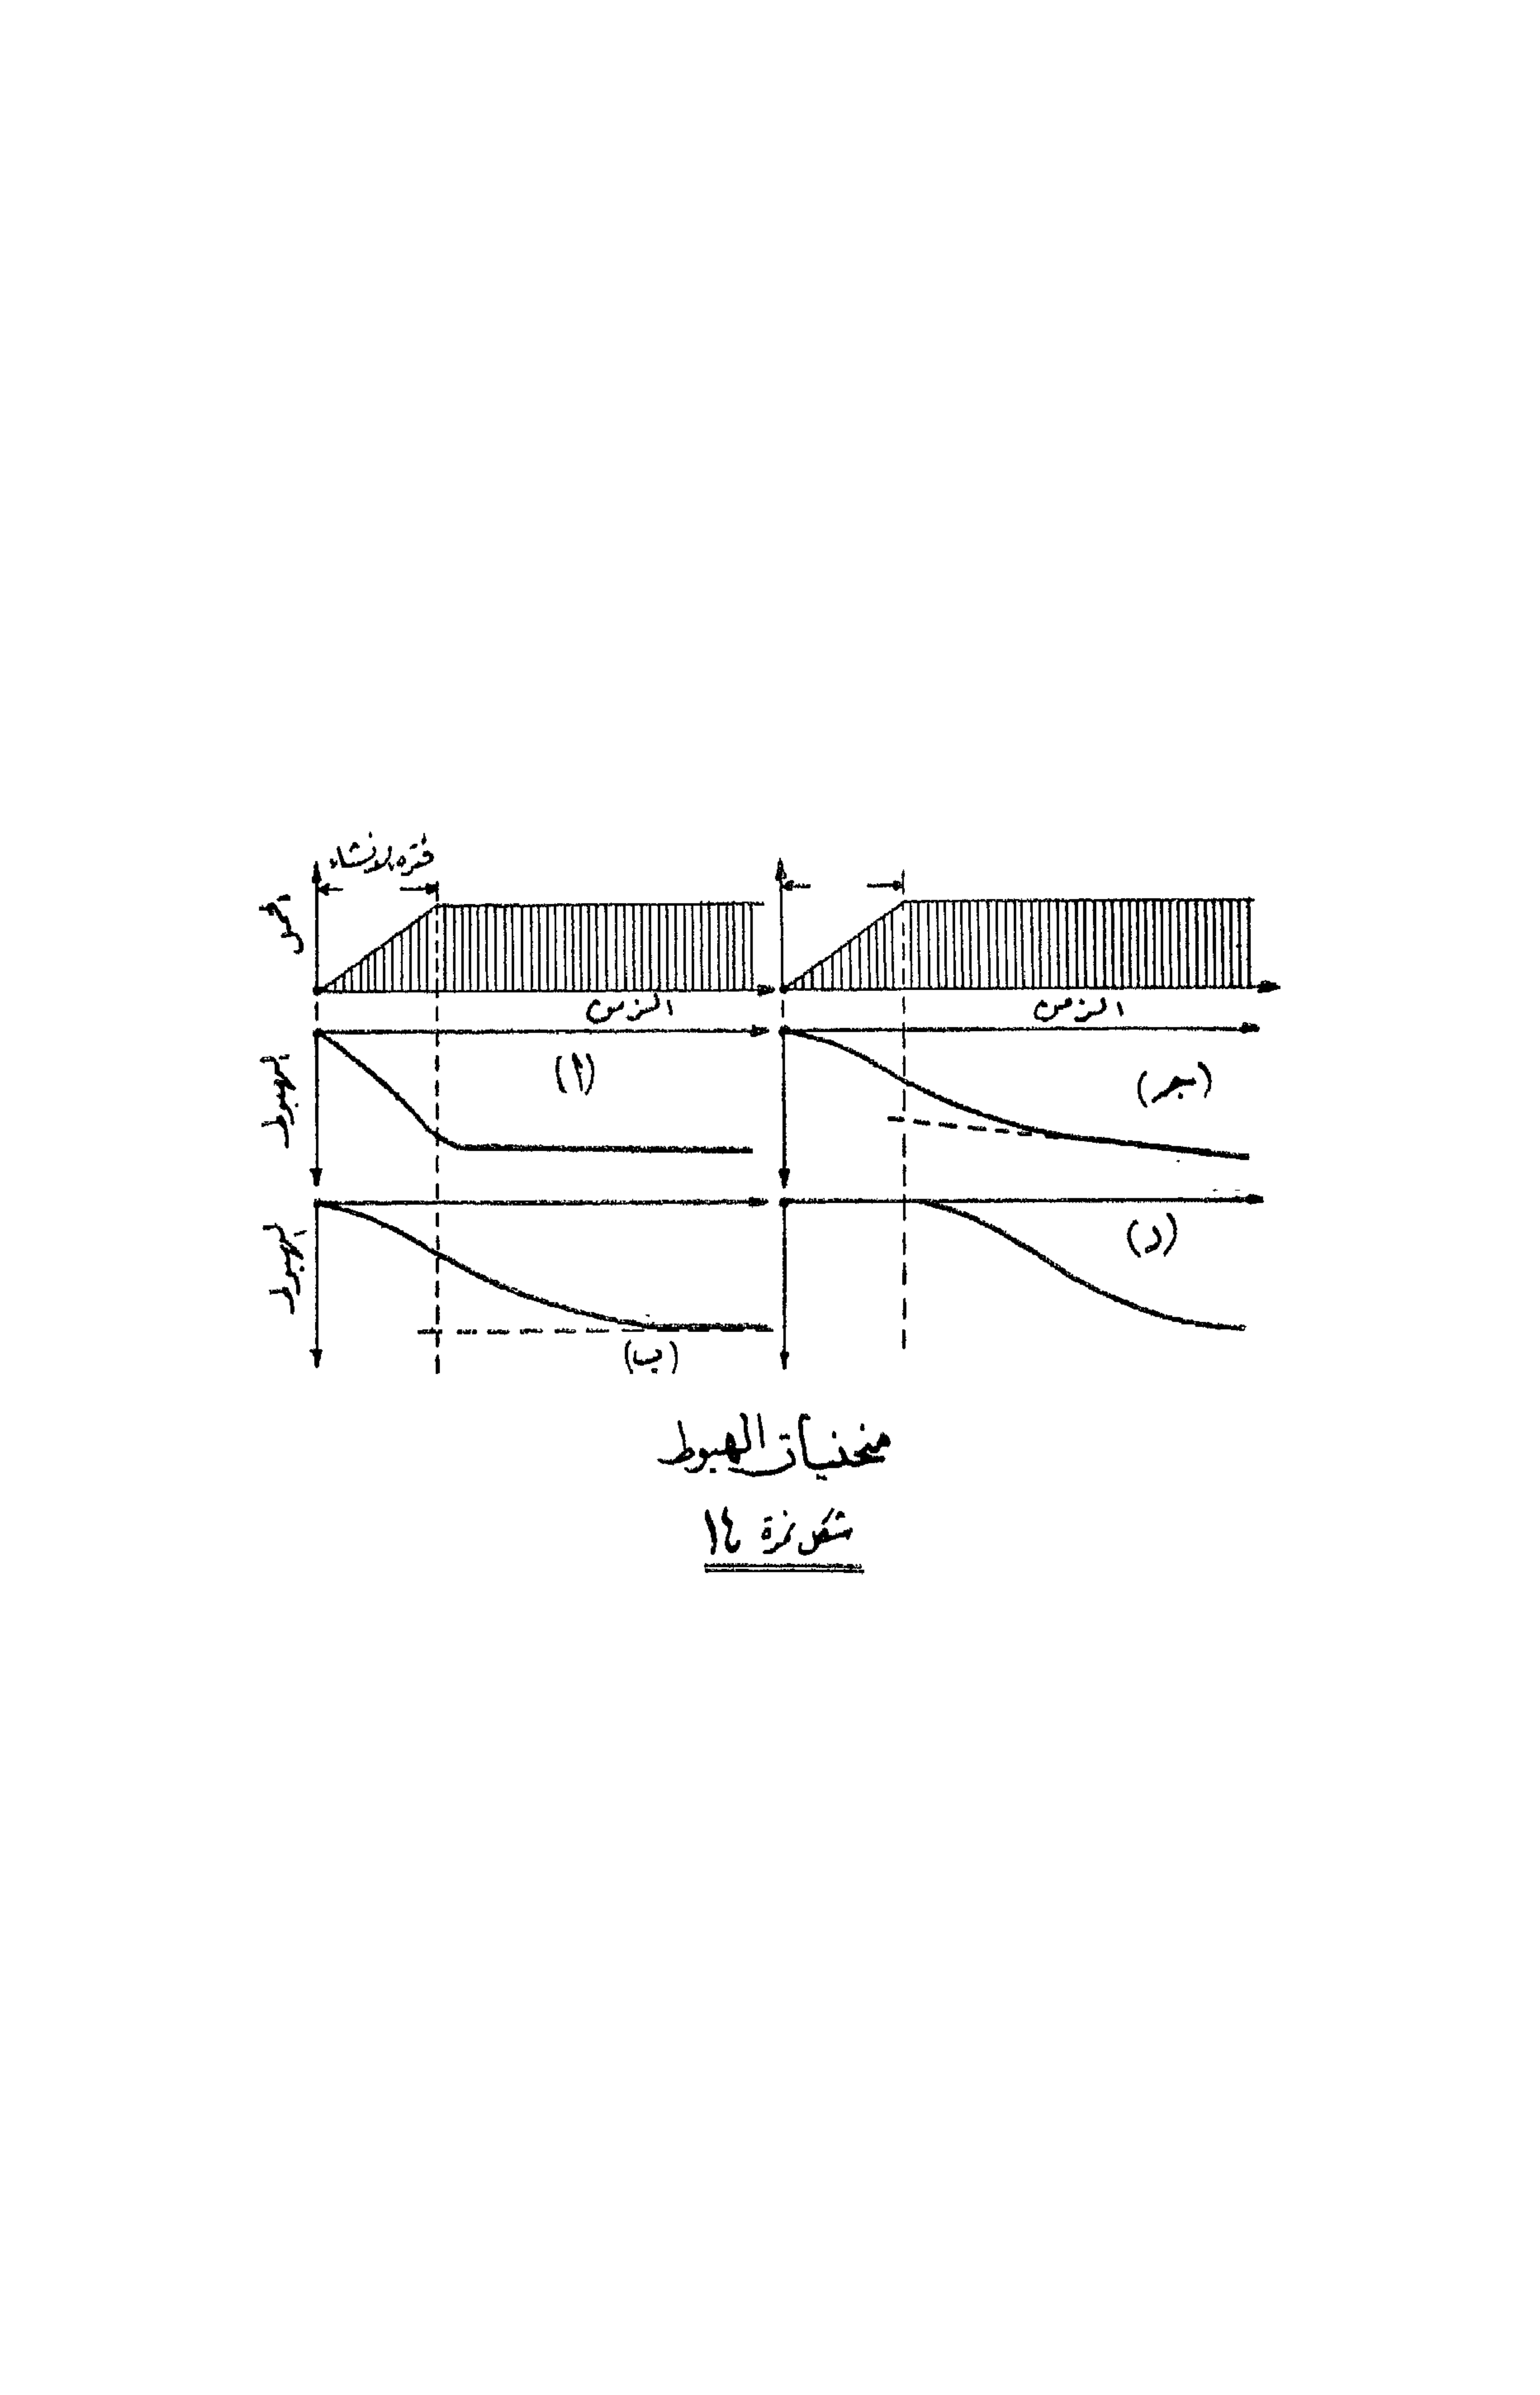 فترة الانشاء
الحمل
الزمن
الزمن
الهبوط
(أ)
(جـ)
الهبوط
(د)
(ب)
منحنيات الهبوط
شكل نمرة ١٤